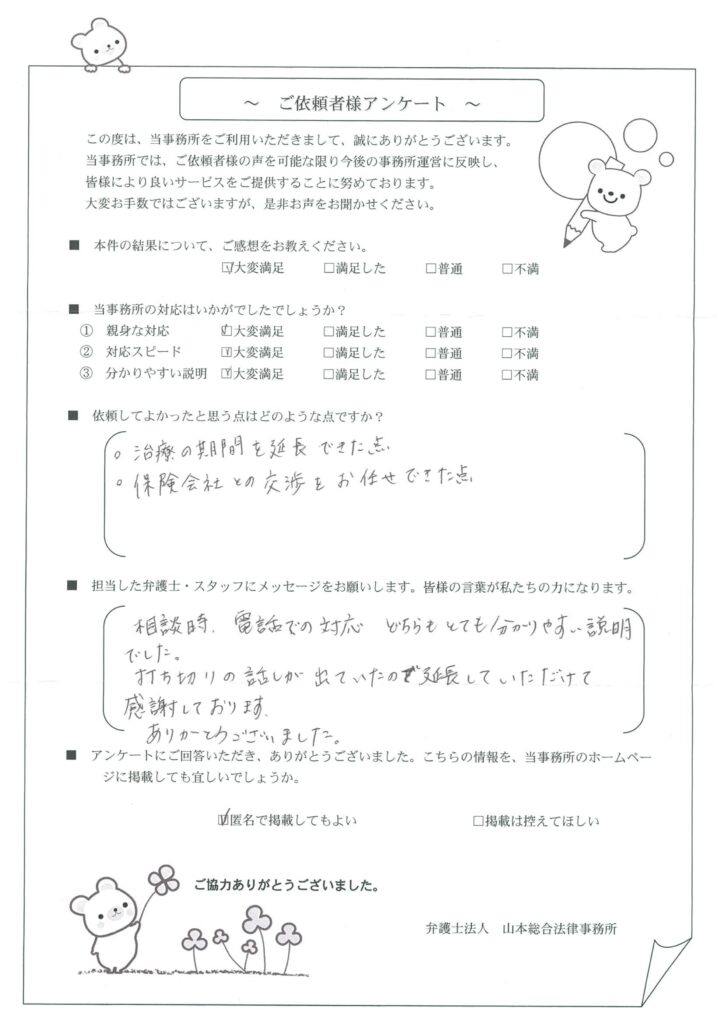 ～ ご依頼者様アンケート ～
この度は、当事務所をご利用いただきまして、誠にありがとうございます。
当事務所では、ご依頼者様の声を可能な限り今後の事務所運営に反映し、
皆様により良いサービスをご提供することに努めております。
大変お手数ではございますが、是非お声をお聞かせください。
■ 本件の結果について、ご感想をお教えください。
☑大変満足 □満足した □普通 □不満
■ 当事務所の対応はいかがでしたでしょうか？
① 親身な対応 ☑大変満足 □満足した □普通 □不満
② 対応スピード ☑大変満足 □満足した □普通 □不満
③ 分かりやすい説明 ☑大変満足 □満足した □普通 □不満
■ 依頼してよかったと思う点はどのような点ですか？
○ 治療の期間を延長できた点
○ 保険会社との交渉をお任せできた点
■ 担当した弁護士・スタッフにメッセージをお願いします。皆様の言葉が私たちの力になります。
相談時、電話での対応 どちらもとても分かりやすい説明
でした。
打ち切りの話しが出ていたので延長していただけて
感謝しております。
ありがとうございました。
■ アンケートにご回答いただき、ありがとうございました。こちらの情報を、当事務所のホームペー
ジに掲載しても宜しいでしょうか。
☑匿名で掲載してもよい □掲載は控えてほしい
ご協力ありがとうございました。
弁護士法人 山本総合法律事務所